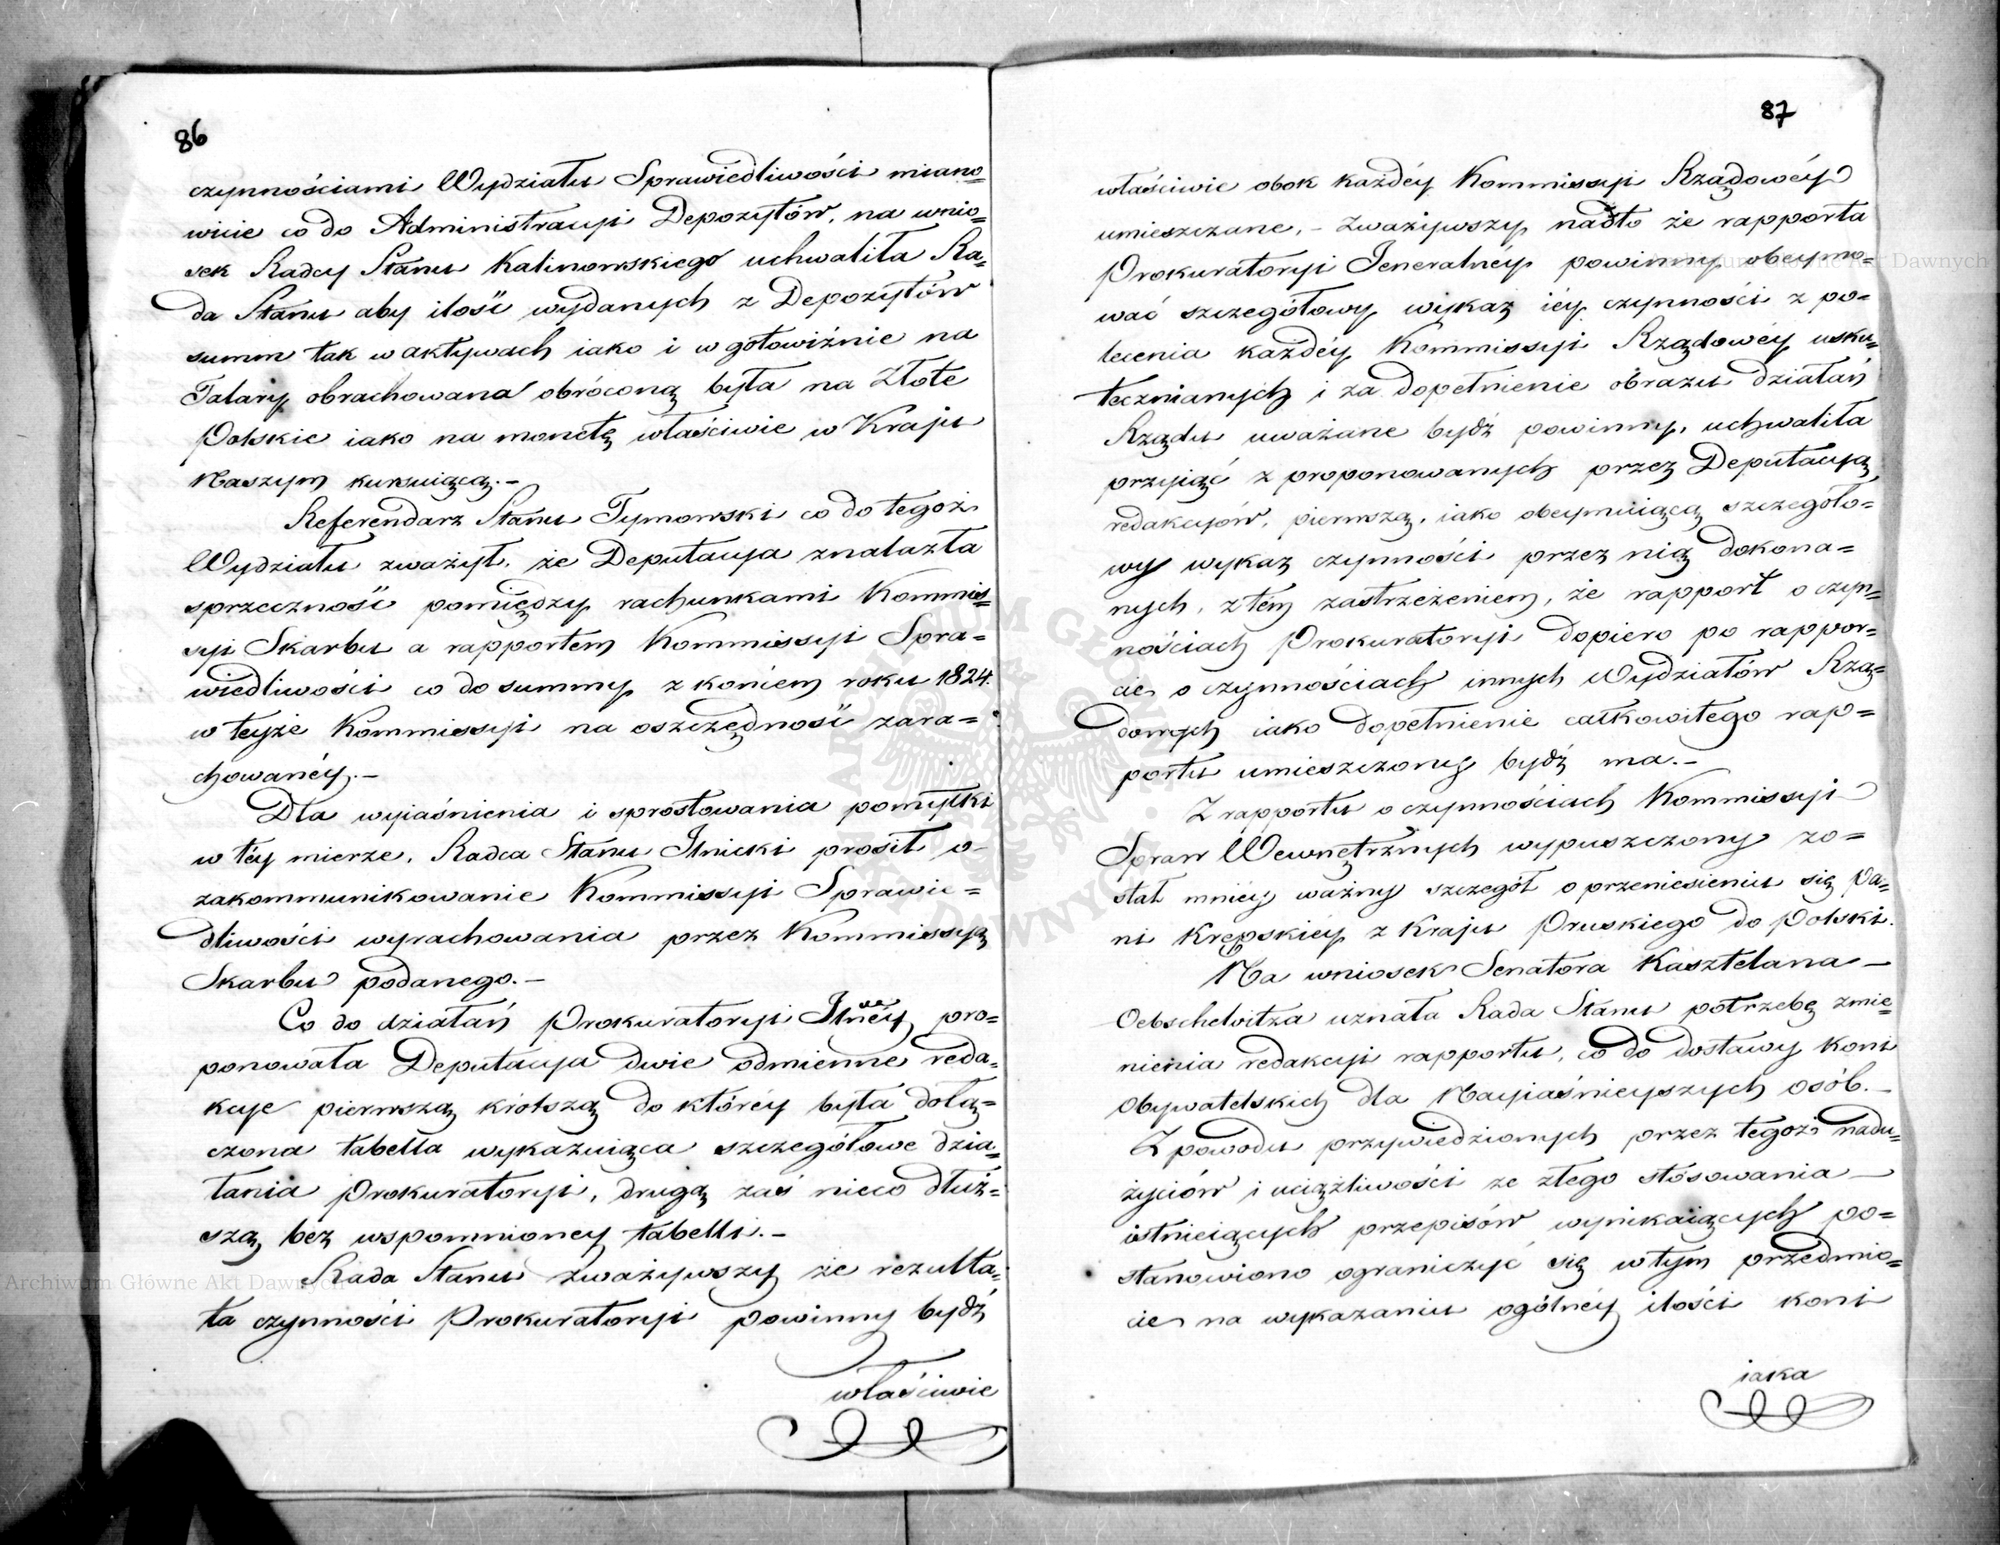 86
czynnościami Wydziału Sprawiedliwości miano=
wicie co do Administracyi Depozytów, na wnio=
sek Radcy Stanu Kalinowskiego uchwaliła Ra=
da Stanu aby ilość wydanych z Depozytów
summ tak w aktywach iako i w gotowiźnie na
Talary obrachowana obróconą była na Złote
Polskie iako na monetę właściwie w Kraju
Naszym kursuiącą.-
Referendarz Stanu Tymowski co do tegoż
Wydziału zważył, że Deputacya znalazła
sprzeczność pomiędzy rachunkami Kommis=
syi Skarbu a rapportem Kommissyi Spra=
wiedliwości co do summy z końcem roku 1824.
w teyże Kommissyi na oszczędność zara=
chowanéy.-
Dla wyiaśnienia i sprostowania pomyłki
w téy mierze, Radca Stanu Ilnicki prosił o
zakommunikowanie Kommissyi Sprawie=
dliwości wyrachowania przez Kommissyą
Skarbu podanego.-
Co do działań Prokuratoryi Jlnéy pro=
ponowała Deputacya dwie odmienne reda=
kcye pierwszą krótszą do któréy była dołą=
czona tabella wykazuiąca szczegółowe dzia=
łania Prokuratoryi, drugą zaś nieco dłuż=
szą bez wspomnioney tabelli.-
Rada Stanu zważywszy że rezulta=
ta czynności Prokuratoryi powinny bydź
właściwie
87
właściwie obok każdéy Kommissyi Rządowéy
umieszczane,- zważywszy nadto że rapporta
Prokuratoryi Jeneralnéy powinny obeymo=
wać szczegółowy wykaz iéy czynności z po=
lecenia każdéy Kommissyi Rządowéy usku=
tecznianych i za dopełnienie obrazu działań
Rządu uważane bydź powinny, uchwaliła
przyiąć z proponowanych przez Deputacyą
redakcyów, pierwszą, iako obeymuiącą szczegóło=
wy wykaz czynności przez nią dokona=
nych, z tém zastrzeżeniem, że rapport o czyn=
nościach Prokuratoryi dopiero po rappor=
cie o czynnościach innych Wydziałów Rzą=
dowych iako dopełnienie całkowitego rap=
portu umieszczony bydź ma.-
Z rapportu o czynnościach Kommissyi
Spraw Wewnętrznych wypuszczony zo=
stał mniéy ważny szczegół o przeniesieniu się Pa=
ni Krępskiéy z Kraju Pruskiego do Polski.
Na wniosek Senatora Kasztelana
Oebschelwitza uznała Rada Stanu potrzebę zmie=
nienia redakcyi rapportu, co do dostawy koni
Obywatelskich dla Nayiaśnieyszych osób.-
Z powodu przywiedzionych przez tegoż nadu=
życiów i uciążliwości ze złego stósowania
istnieiących przepisów wynikaiących po=
stanowiono ograniczyć się w tym przedmio=
cie na wykazaniu ogólnéy ilości koni
iaka
Archiwum Główne Akt Dawnych